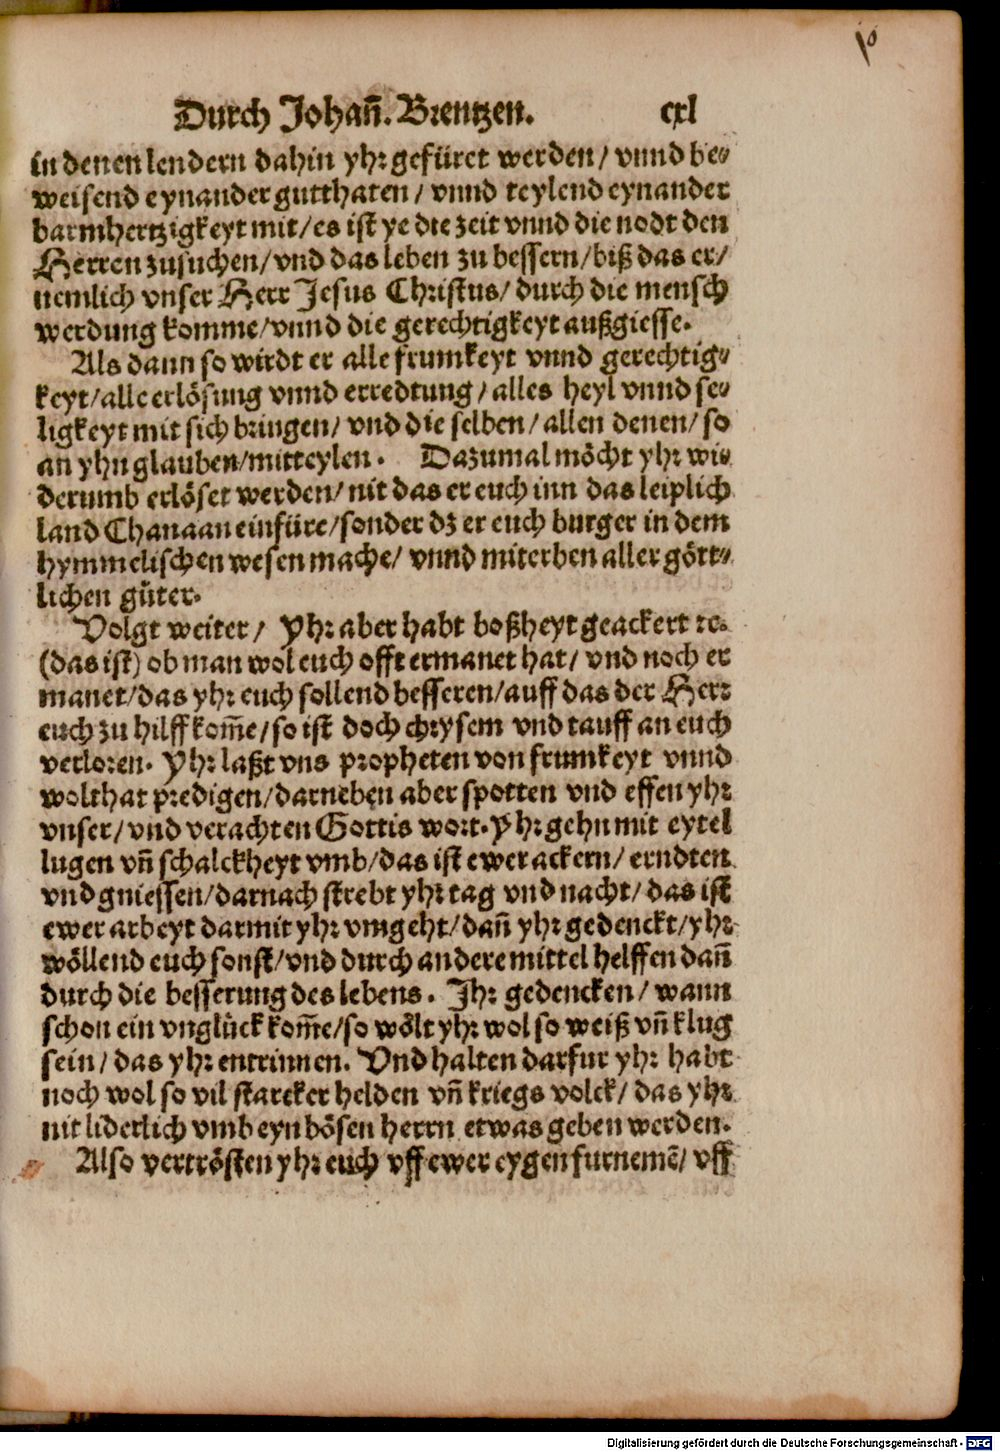 Durch Johañ. Brentzen. cxl
in denen lendern dahin yhr gefüret werden / vnnd be-
weisend eynander gutthaten / vnnd teylend eynander
barmhertzigkeyt mit / es ist ye die zeit vnnd die nodt den
Herren zusuchen / vnd das leben zu bessern / biß das er /
nemlich vnser Herr Jesus Christus / durch die mensch
werdung komme / vnnd die gerechtigkeyt außgiesse.
Als dann so wirdt er alle frumkeyt vnnd gerechtig-
keyt / alle erlösung vnnd erredtung / alles heyl vnnd se-
ligkeyt mit sich bringen / vnd die selben / allen denen / so
an yhn glauben / mitteylen. Dazumal möcht yhr wi-
derumb erlöset werden / nit das er euch inn das leiplich
land Chanaan einfüre / sonder dz er euch burger in dem
hymmelischen wesen mache / vnnd miterben aller gött-
lichen güter.
Volgt weiter / Yhr aber habt boßheyt geackert ꝛc.
(das ist) ob man wol euch offt ermanet hat / vnd noch er
manet / das yhr euch sollend besseren / auff das der Herr
euch zu hilff kom̃e / so ist doch chrysem vnd tauff an euch
verloren. Yhr laßt vns propheten von frumkeyt vnnd
wolthat predigen / darneben aber spotten vnd effen yhr
vnser / vnd verachten Gottis wort. Yhr gehn mit eytel
lugen vñ schalckheyt vmb / das ist ewer ackern / erndten
vnd gniessen / darnach strebt yhr tag vnd nacht / das ist
ewer arbeyt darmit yhr vmgeht / dañ yhr gedenckt / yhr
wöllend euch sonst / vnd durch andere mittel helffen dañ
durch die besserung des lebens. Ihr gedencken / wann
schon ein vnglück kom̃e / so wölt yhr wol so weiß vñ klug
sein / das yhr entrinnen. Vnd halten darfur yhr habt
noch wol so vil starcker helden vñ kriegs volck / das yhr
nit liderlich vmb eyn bösen herrn etwas geben werden.
Also vertrösten yhr euch vff ewer eygen furnemē / vff
Digitalisierung gefördert durch die Deutsche Forschungsgemeinschaft - DFG